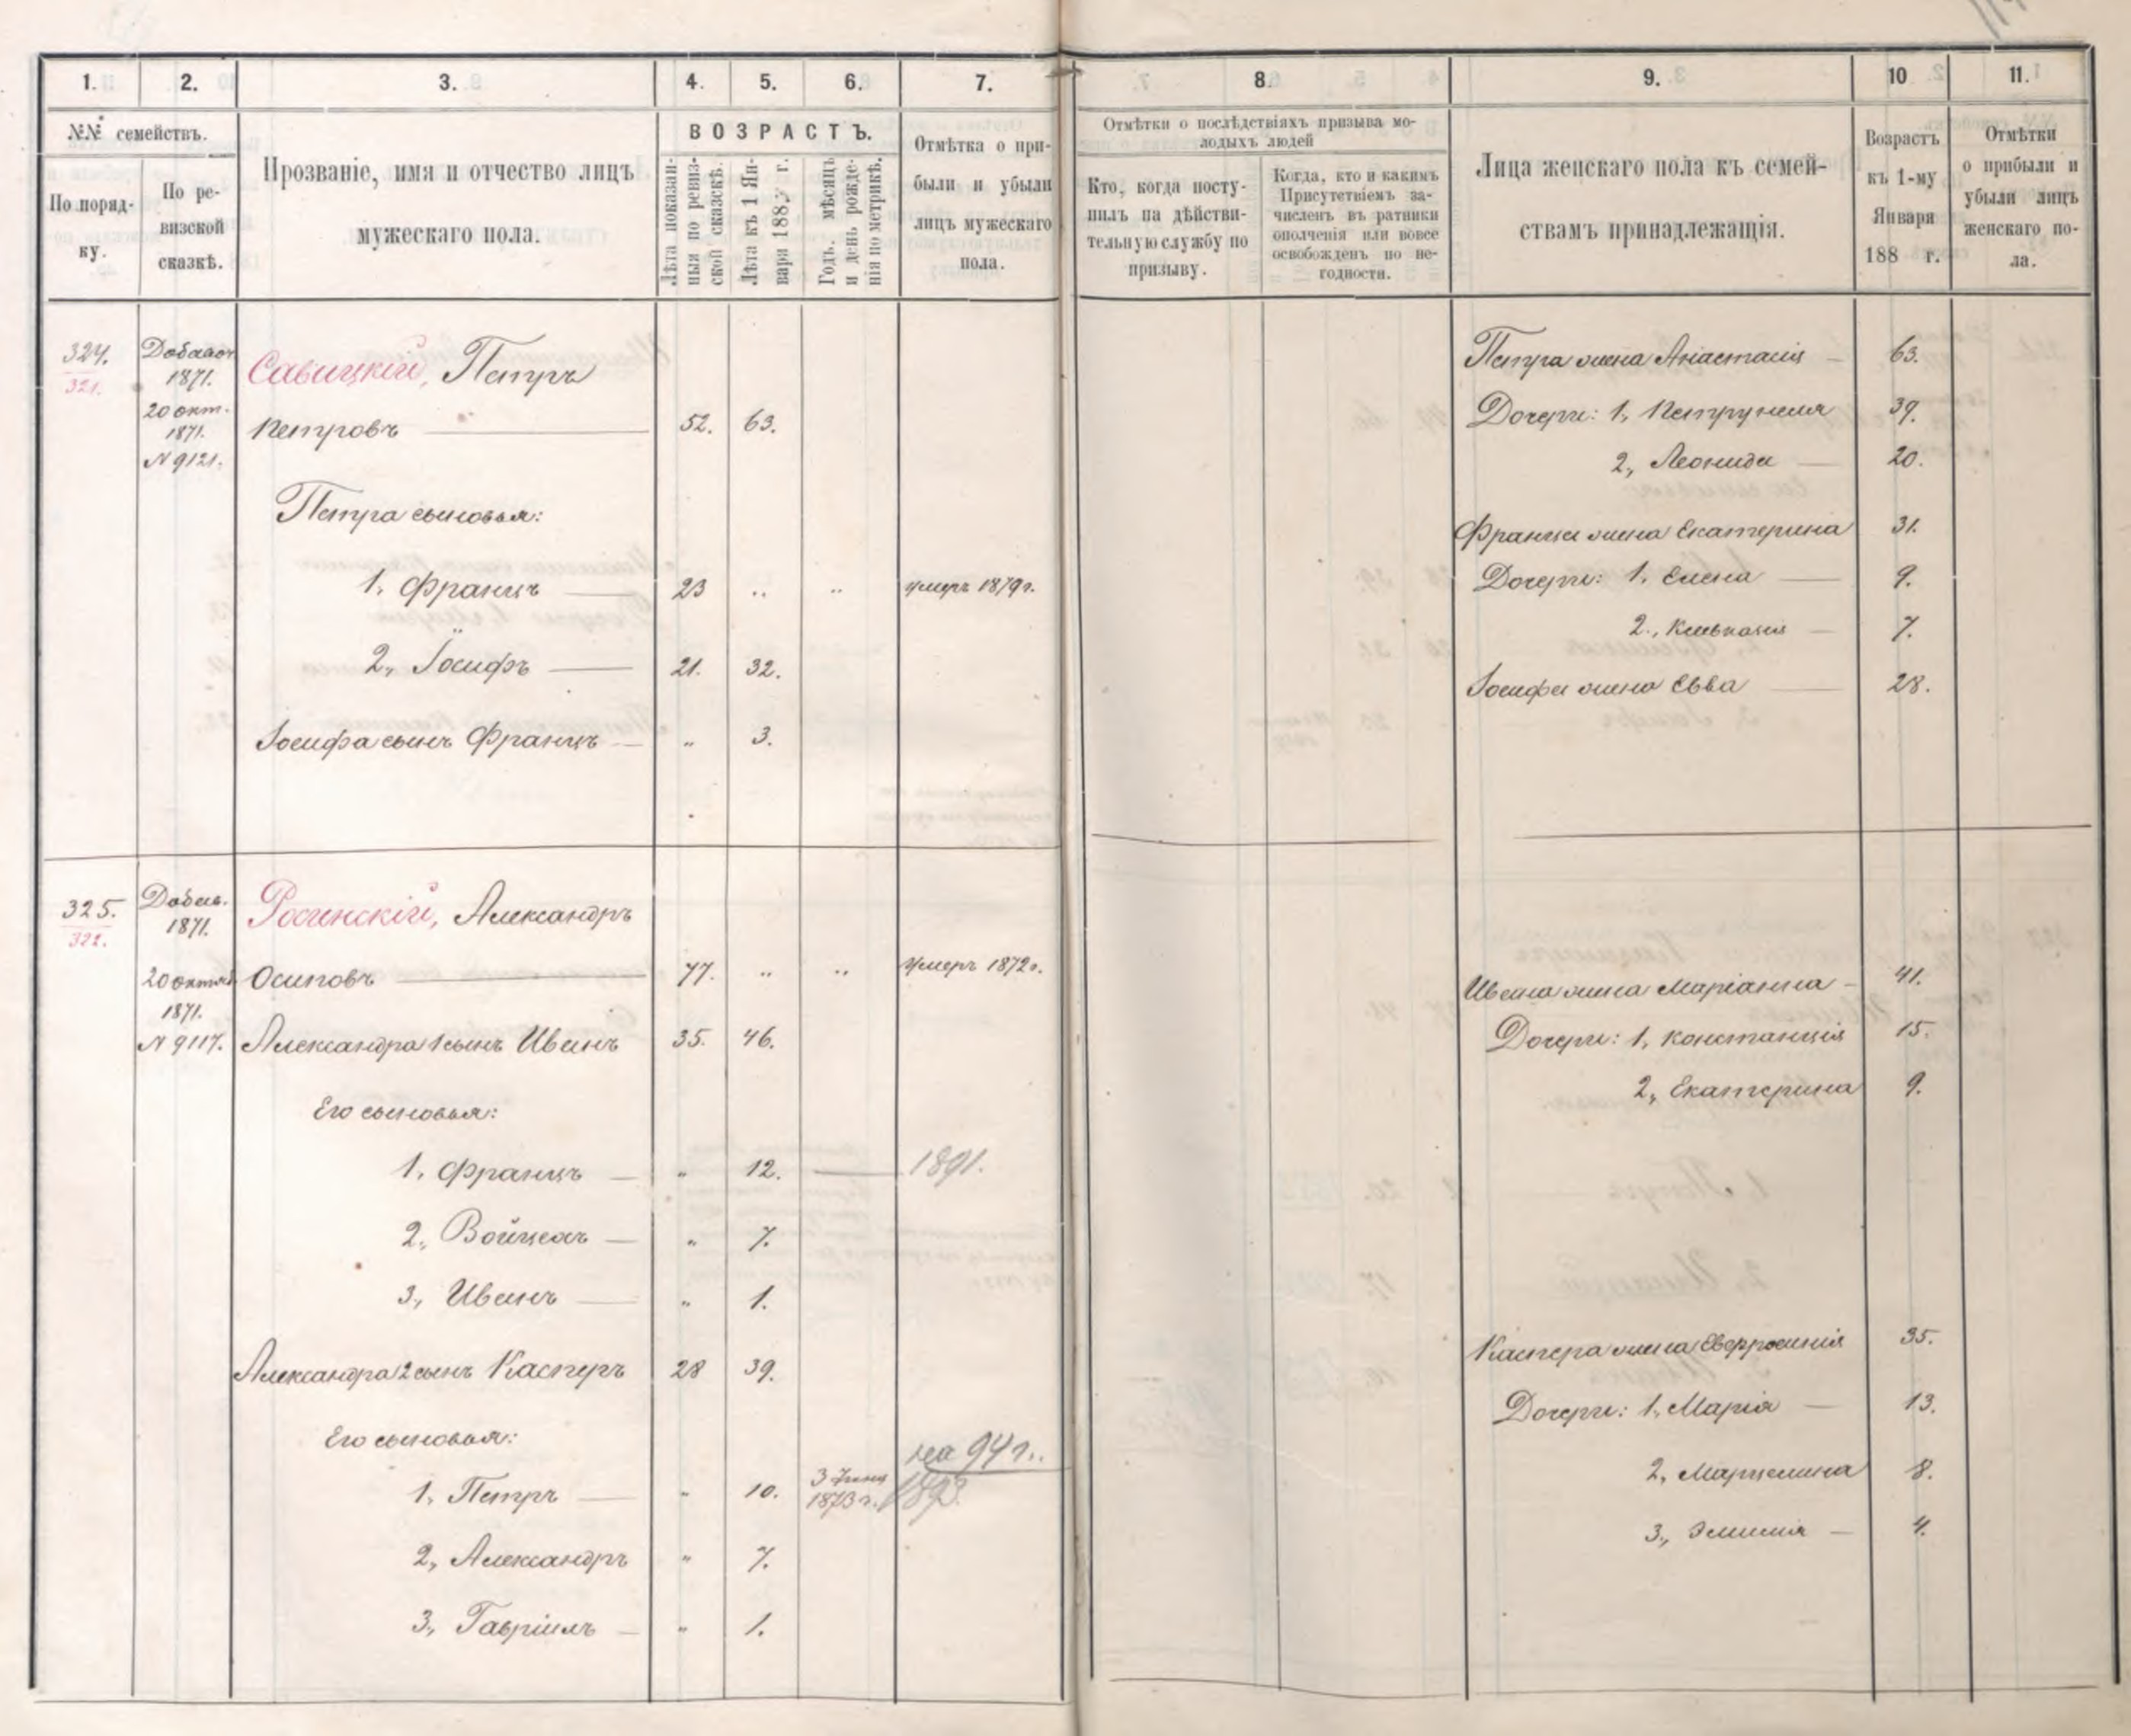 1.
2.
3.
4.
5.
6.
7.
8.
9.
10
11.
№№ семействъ.
По поряд-
ку.
По ре-
визской
сказкѣ.
Прозваніе, имя и отчество лицъ
мужескаго пола.
ВОЗРАСТЪ.
Лѣта показан-
ныя по ревиз-
ской сказкѣ.
Лѣта къ 1 Ян-
варя 1883 г.
Годъ, мѣсяцъ
и день рожде-
нія по метрикѣ.
Отмѣтка о при-
были и убыли
лицъ мужескаго
пола.
Отмѣтки о послѣдствіяхъ призыва мо-
лодыхъ людей
Кто, когда посту-
пилъ на дѣйстви-
тельную службу по
призыву.
Когда, кто и какимъ
Присутствіемъ за-
численъ въ ратники
ополченія или вовсе
освобожденъ по не-
годности.
Лица женскаго пола къ семей-
ствамъ принадлежащія.
Возрастъ
къ 1-му
Января
188 г.
Отмѣтки
о прибыли и
убыли лицъ
женскаго по-
ла.
324.
321.
Добавоч.
1871.
20 окт.
1871.
N 9121.
Савицкій, Петръ
Петровъ 52. 63.
Петра сыновья:
1, Францъ 23 .. .. умеръ 1879 г.
2, Іосифъ 21. 32.
Іосифа сынъ Францъ " 3.
Петра жена Анастасія 63.
Дочери: 1, Петрунеля 39.
2, Леонида 20.
Франца жена Екатерина 31.
Дочери: 1, Елена 9.
2, 7.
Іосифа жена Евва 28.
325.
322.
Добав.
1871.
20 октяб.
1871.
N 9117.
Росинскій, Александръ
Осиповъ 77. .. .. Умеръ 1872 г.
Александра 1 сынъ Иванъ 35. 46.
Его сыновья:
1, Францъ " 12. 1891.
2, Войцехъ " 7.
3, Иванъ " 1.
Александра 2 сынъ Касперъ 28 39.
Его сыновья:
на 94 г.
1, Петръ " 10. 3
1873 г. 1893.
2, Александръ " 7.
3, Гавріилъ " 1.
Ивана жена Маріанна 41.
Дочери: 1, Констанція 15.
2, Екатерина 9.
Каспера жена 35.
Дочери: 1, Марія 13.
2, Марцелина 8.
3, Эмилія 4.